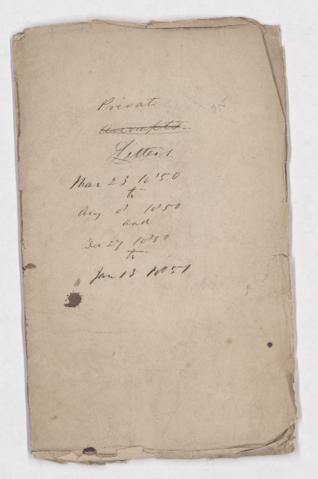 Private
Letters
Mar 23 1850
to
Aug 8 1850
and
Dec 27 1850
to
Jan 13 1851